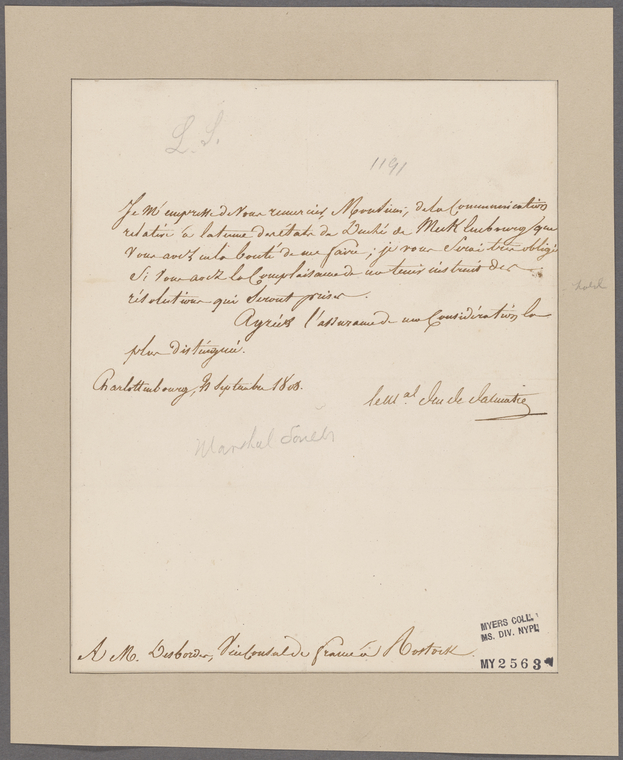 L. S.
1191
Je m'empresse de vous remercier, Monsieur, de la Communication
relative à la tenue des etats du Duché de Mecklenbourg, que
vous avez eu la bonté de me faire; je vous serai très obligé
si vous avez la Complaisance de me tenir instruit des
résolutions qui seront prises.
Agréez l'assurance de ma Considération la
plus distinguée.
Charlottenbourg, Septembre 1808.
le M.al Duc de Dalmatie
Marshal Soult
A M. Desbordes, Vice Consul de france à Rostock.
MYERS COLL.
MS. DIV. NYPL
MY 2563